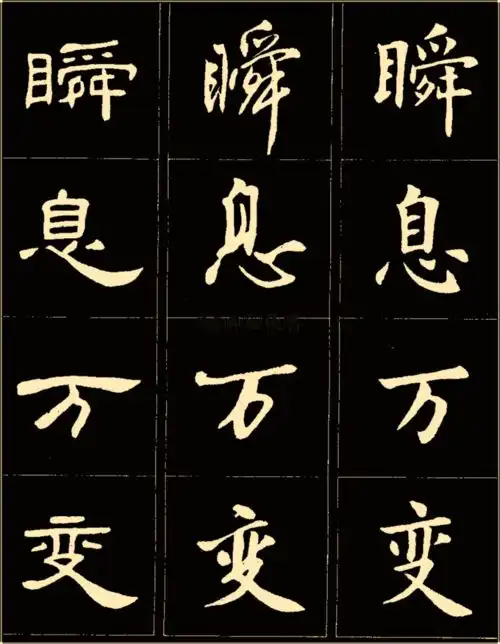 瞬息万变
瞬息万变
瞬息万变